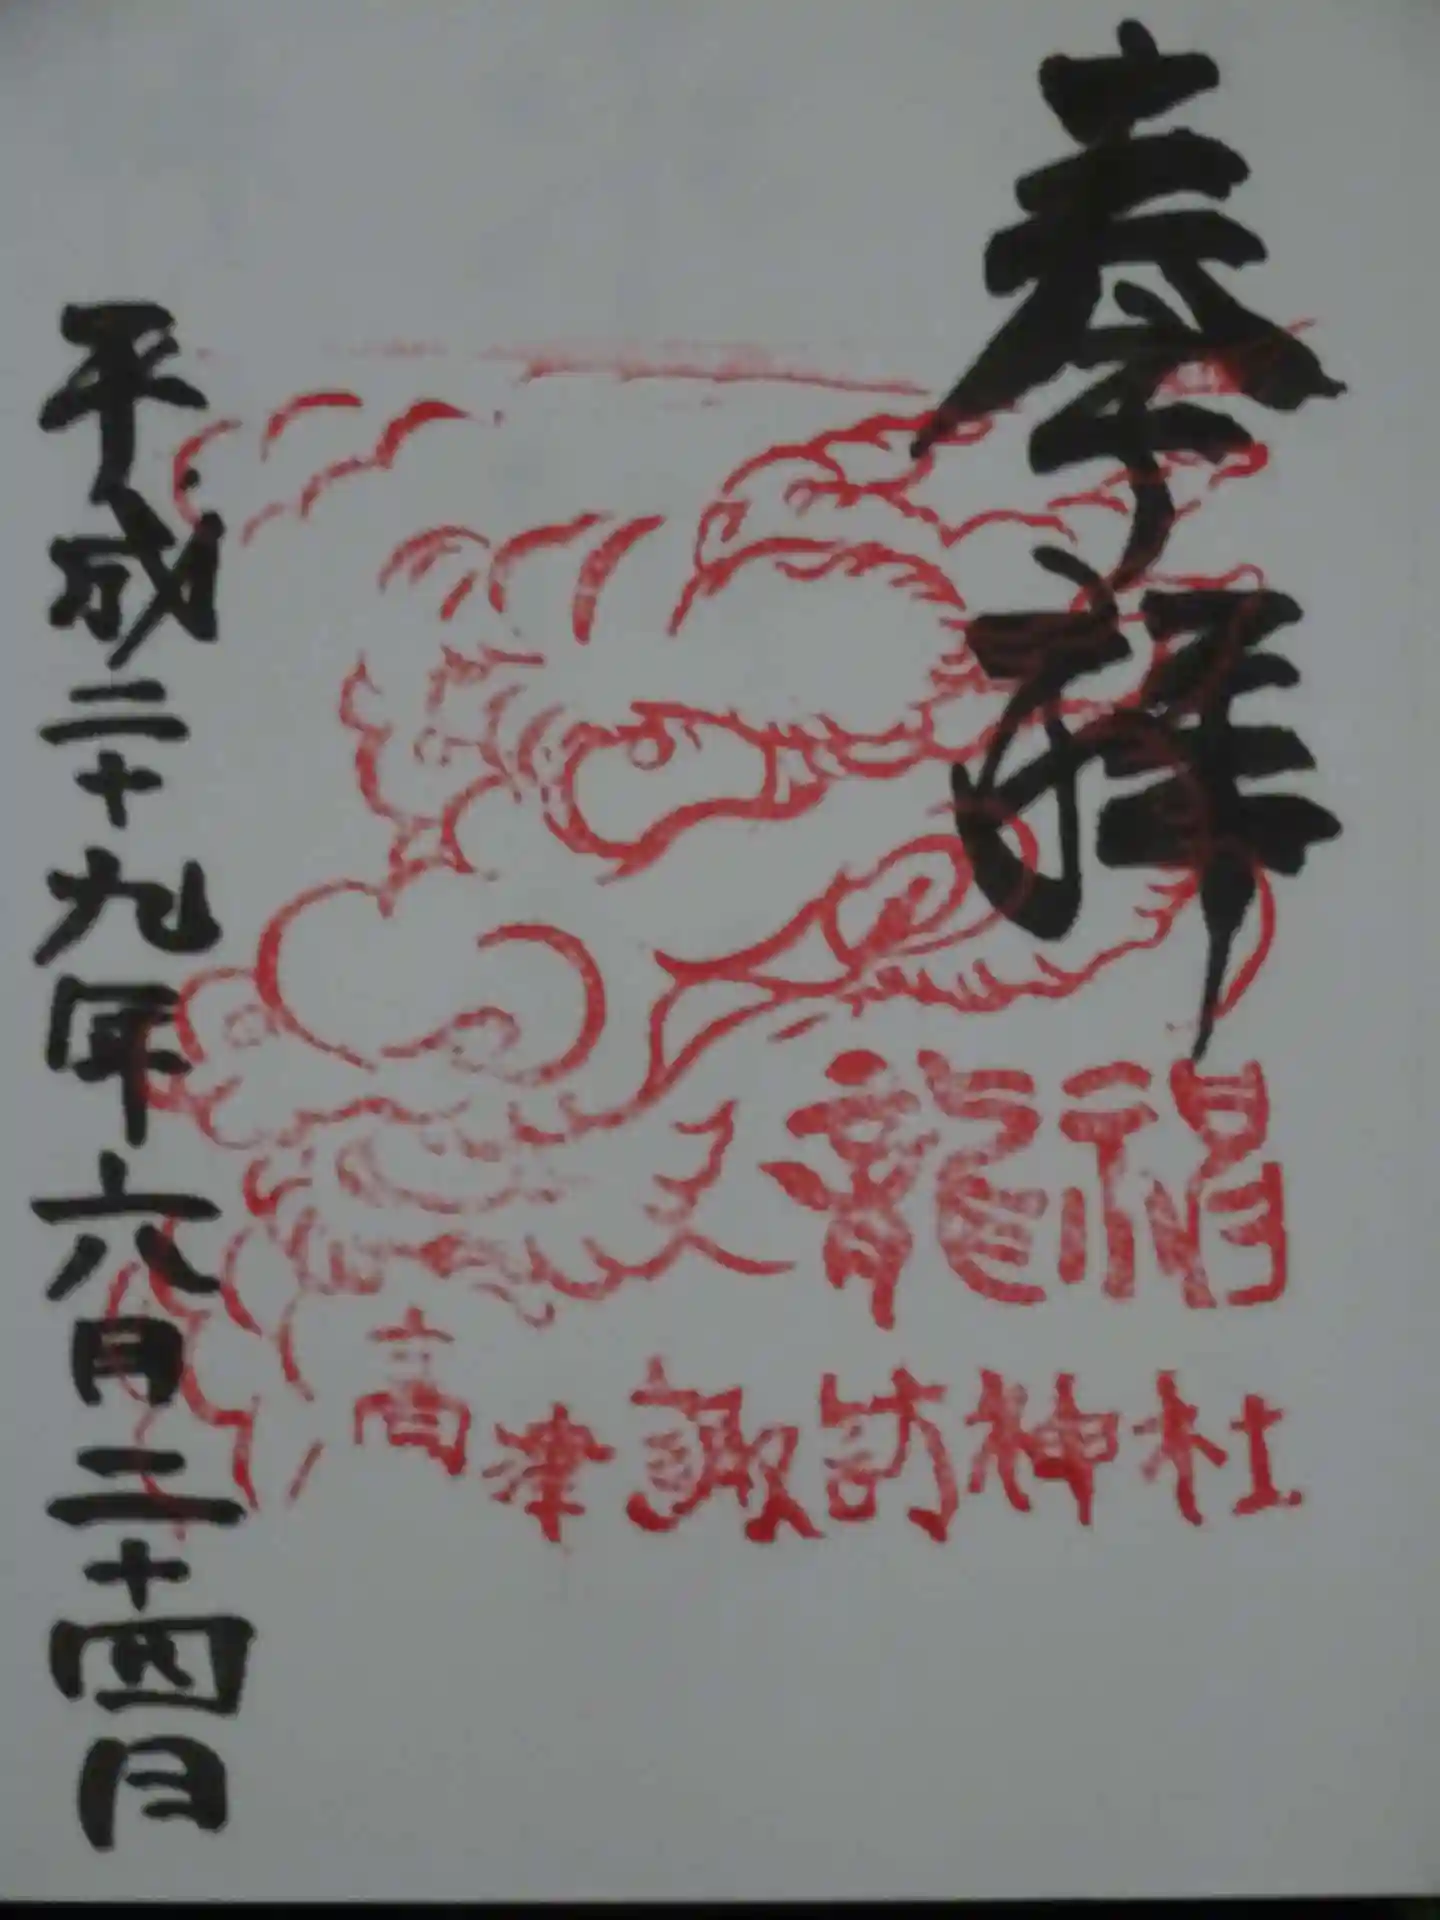 奉拝
龍福
高津諏訪神社
平成二十九年六月二十四日